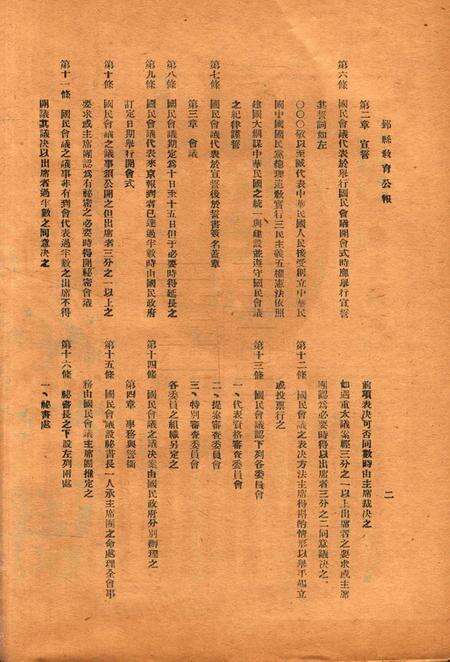 鄞縣教育公報
二
第二章　宣誓
第六條　國民會議代表於舉行國民會議開會式時應舉行宣誓
其誓詞如左
〇〇〇敬以至誠代表中華民國人民接受創立中華民
國中國國民黨總理遺教實行三民主義五權憲法依照
建國大綱謀中華民國之統一與建設並遵守國民會議
之紀律謹誓
第七條　國民會議代表於宣誓後於誓書簽名蓋章
第三章　會議
第八條　國民會議期定為十日至十五日但于必要時得延長之
第九條　國民會議代表來京報到者已達過半數時由國民政府
訂定日期舉行開會式
第十條　國民會議之議事須公開之但出席者三分之一以上之
要求或主席團認為有祕密之必要時得開祕密會議
第十一條　國民會議之議事非有到會代表過半數之出席不得
開議其議決以出席者過半數之同意決之
前項表決可否同數時由主席裁決之
如遇重大議案經三分之一以上出席者之要求或主席
團認為必要時得以出席者三分之二同意議決之
第十二條　國民會議之表決方法主席得酌情形以舉手起立
或投票行之
第十三條　國民會議設下列各委員會
一、代表資格審查委員會
二、提案審查委員會
三、特別審查委員會
各委員之組織另定之
第十四條　國民會議之議決案由國民政府分別辦理之
第四章　事務與警衛
第十五條　國民會議設祕書長一人承主席團之命處理全會事
務由國民會議主席團推定之
第十六條　祕書長之下設左列兩處
一、祕書處